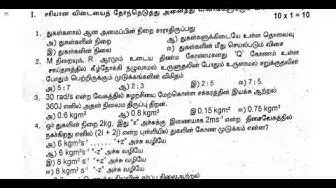 I. சரியான விடையைத் தேர்ந்தெடுத்து 10 x 1 = 10
1. துகள்களால் ஆன அமைப்பின் நிறை சார்ந்திருப்பது
அ) துகள்களின் நிறை ஆ) துகள்களுக்கிடையே உள்ள தொலைவு
இ) துகள்களின் நிலை ஈ) துகள்களின் மீது செயல்படும் விசை
2. M நிறையும், R ஆரமும் உடைய திண்ம கோளமானது 'Q' கோணம் உள்ள
சாய்தளத்தில் கீழ்நோக்கி நழுவாமல் உருளுதலின் போதும் உருளாமல் சறுக்குதலின்
போதும் பெற்றிருக்கும் முடுக்கங்களின் விகிதம்
அ) 5 : 7 ஆ) 2 : 3 இ) 2 : 5 ஈ) 7 : 5.
3. 30 rad/s என்ற வேகத்தில் சுழற்சியை மேற்கொள்ள சக்கரத்தின் இயக்க ஆற்றல்
360J எனில் அதன் நிலைம திருப்பு திறன்.
அ) 0.6 kgm² ஆ) 0.8 kgm² இ) 0.15 kgm² ஈ) 0.75 kgm²
4. ஓர் துகளின் நிறை 2kg, இது "x" அச்சுக்கு இணையாக 2ms⁻¹ என்ற திசைவேகத்தில்
நகர்கிறது எனில் (2i + 2j) என்ற புள்ளியில் துகளின் கோண முடுக்கம் என்ன?
அ) 6 kgm²s⁻¹ "+z" அச்சு வழியே
ஆ) 6 kgm²s⁻¹ "-z" அச்சு வழியே
இ) 8 kgm² s⁻¹ "+z" அச்சு வழியே
ஈ) 8 kgm² s⁻¹ "-z" அச்சு வழியே